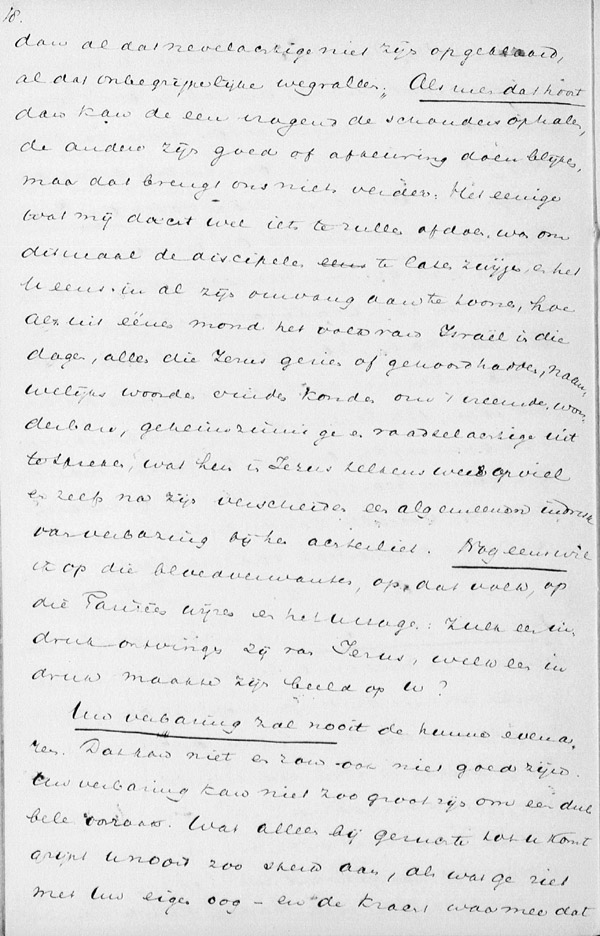 18.
dan al dat nevelachtige niet zijn opgeklaard,
al dat onbegrijpelijke wegvallen. Als men dat hoort
dan kan de een vragend de schouders ophalen,
de ander zijn goed of afkeuring doen blijken,
maar dat brengt ons niets verder. Het eenige
wat mij dacht wel iets te zullen afdoen, was om
ditmaal de discipelen eens te laten zwijgen, en het
U eens in al zijn omvang aan te toonen, hoe
als uit éénen mond het volk van Israël in die
dagen, allen die Jezus gezien of gehoord hadden, nauw-
welijks woorden vinden konden om 't vreemde, won-
derbare, geheimzinnige en raadselachtige uit
te spreken, wat hen in Jezus telkens weer opviel
en zelf na zijn verscheiden een algemeenen indruk
van verbazing bij hen achterliet. Nog eens wil
ik op die bloedverwanten, op dat volk, op
die Farizeën wijzen en het U vragen: Zulk een in-
druk ontvingen zij van Jezus, welk een in
druk maakte zijn beeld op U?
Uw verbazing zal nooit de hunne evena-
ren. Dat kan niet en zou ook niet goed zijn.
Uw verbazing kan niet zoo groot zijn om een dub
bele oorzaak. Wat alleen bij geruchte tot U komt
grijpt U nooit zoo sterk aan, als wat ge ziet
met Uw eigen oog – en de kracht waarmee dat